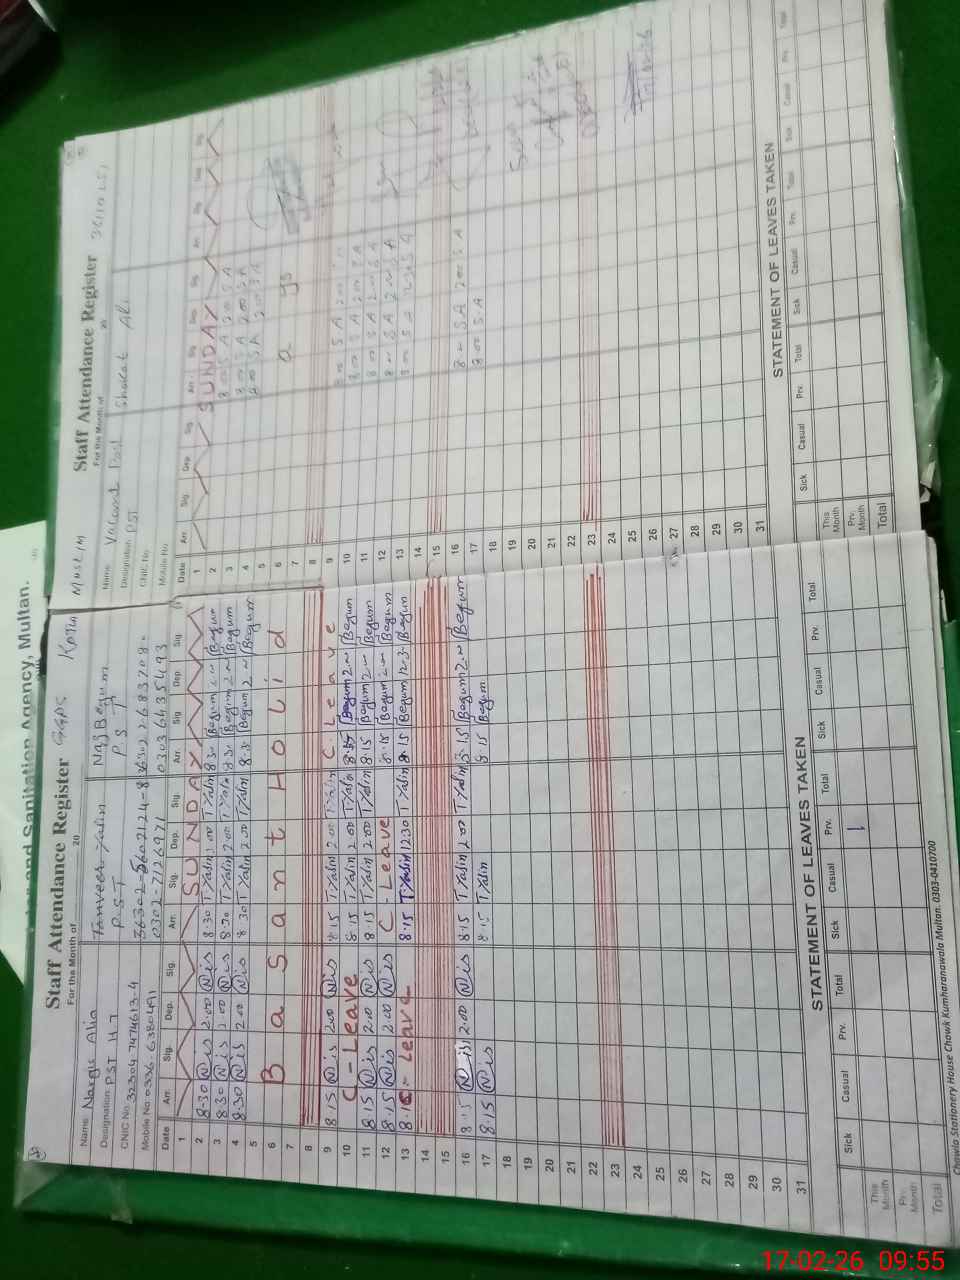 and Sanitation Agency, Multan.
Staff Attendance Register GGPS
For the Month of 20
Name Nargis Alia
Designation PST H.T
CNIC No 32304 7474613-4
Mobile No 0336-6380491
Tanveer Yalin
P.S.T
0302-7126971
Naz Begum
P S T
03036435493
Date Arr. Sig. Dep. Sig. Arr. Sig. Dep. Sig. Arr. Sig Dep. Sig.
1 SUNDAY
2 8.30 Nis 2.00 Nis 8.30 T Yalin 2.00 T Yalin 8.30 Begum 2.00 Begum
3 8.30 Nis 2.00 Nis 8.30 T Yalin 2.00 T Yalin 8.30 Begum 2.00 Begum
4 8.30 Nis 2.00 Nis 8.30 T Yalin 2.00 T Yalin 8.30 Begum 2.00 Begum
5
6 Basant Holid
7
8
9 8.15 Nis 2.00 Nis 8.15 T Yalin 2.00 T Yalin C. Leave
10 C-Leave 8.15 T Yalin 2.00 T Yalin 8.15 Begum 2.00 Begum
11 8.15 Nis 2.00 Nis 8.15 T Yalin 2.00 T Yalin 8.15 Begum 2.00 Begum
12 8.15 Nis 2.00 Nis C-Leave 8.15 Begum 2.00 Begum
13 C- Leave 8.15 T Yalin 12.30 T Yalin 8.15 Begum 12.3 Begum
14
15
16 8.15 Nis 2.00 Nis 8.15 T Yalin 2.00 T Yalin 8.15 Begum 2.00 Begum
17 8.15 Nis 8.15 T Yalin 8.15 Begum
18
19
20
21
22
23
24
25
26
27
28
29
30
31
STATEMENT OF LEAVES TAKEN
Sick Casual Prv. Total Sick Casual Prv. Total Sick Casual Prv. Total
This Month
Prv. Month 1
Total
Chawla Stationery House Chowk Kumharanawala Multan. 0303-0410700
MUSLIM
Staff Attendance Register
For the Month of 20
Name Vacant Post Shokat Ali
Designation PST
CNIC No
Mobile No
Date Arr. Sig. Dep Sig. Arr. Sig Dep. Sig. Arr. Sig. Dep. Sig.
1 SUNDAY
2 8 00 SA 2 00 SA
3 8 00 SA 2 00 SA
4 8 00 SA 2 00 SA
5
6 a ys
7
8
9 8 00 SA 2 00
10 8 00 SA 2 00 SA
11 8 00 SA 2 00 SA
12 8 00 SA 2 00 SA
13 8 00 SA 12 30 SA
14
15
16 8 00 SA 2 00 SA
17 8 00 SA
18
19
20
21
22
23
24
25
26
27
28
29
30
31
STATEMENT OF LEAVES TAKEN
Sick Casual Prv. Total Sick Casual Prv. Total Sick Casual Prv. Total
This Month
Prv. Month
Total
17-02-26 09:55